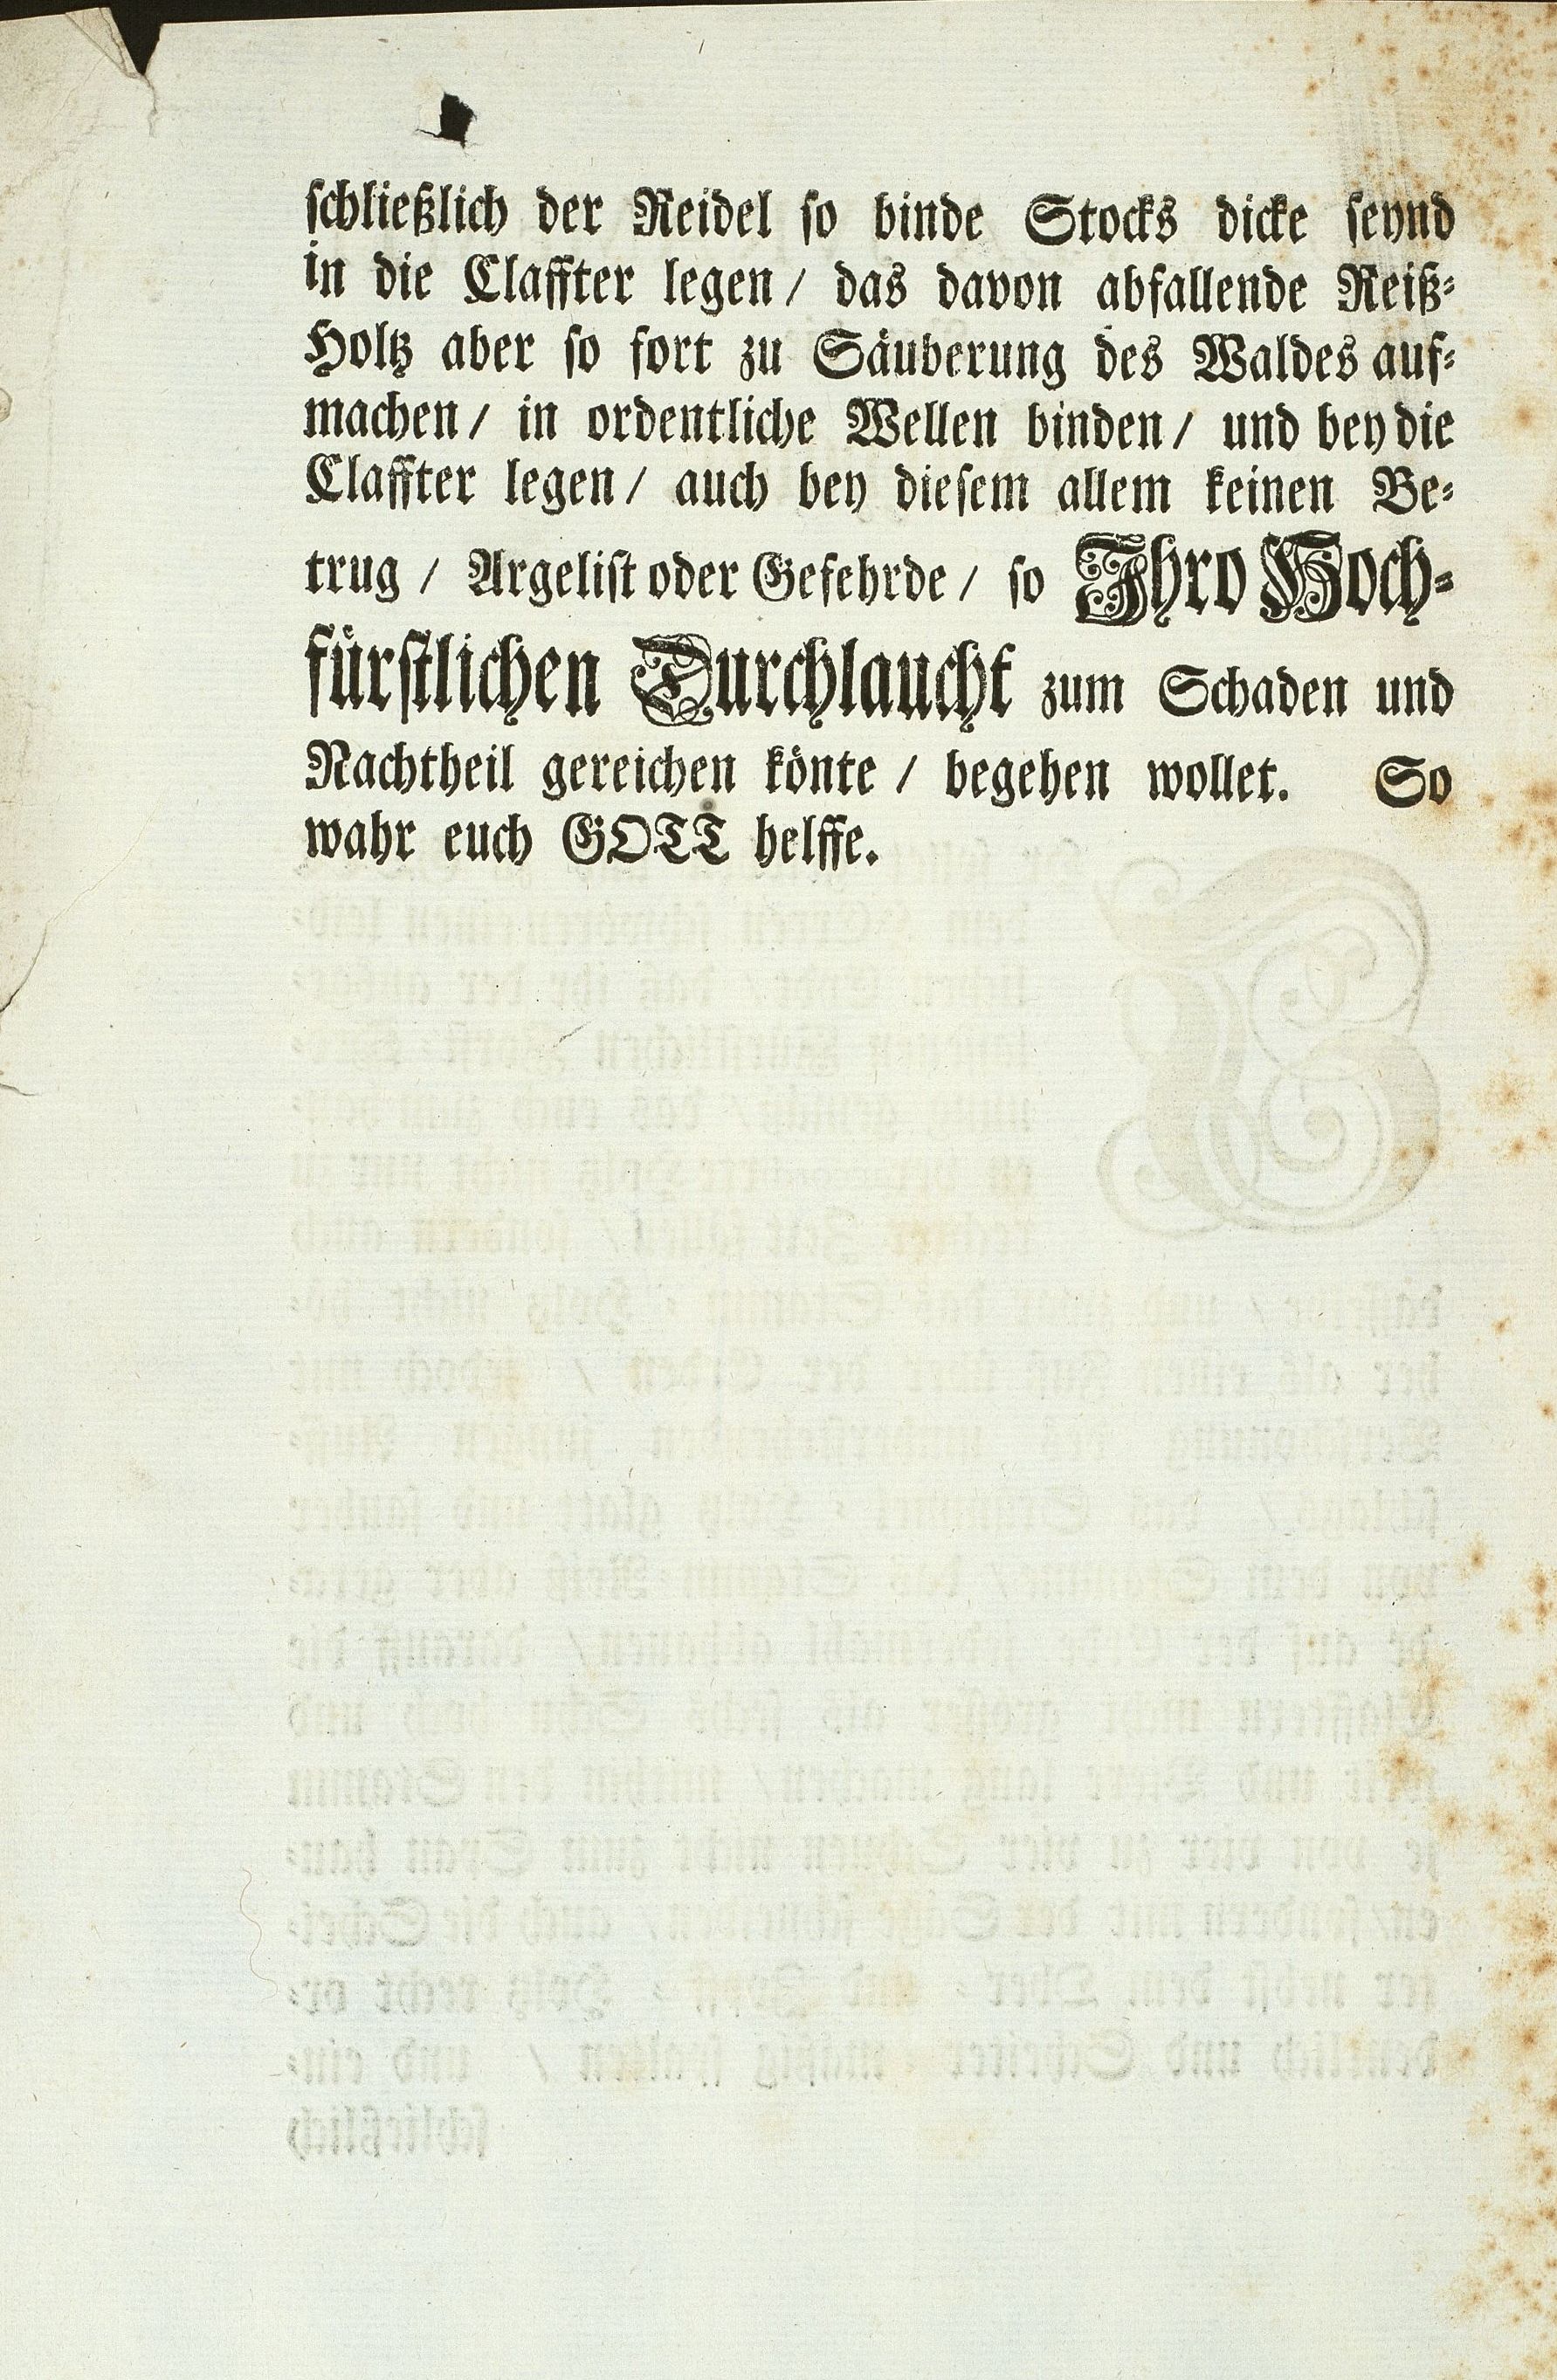 schließlich der Reidel so binde Stocks dicke seynd
in die Claffter legen / das davon abfallende Reiß-
Holtz aber so fort zu Säuberung des Waldes auf-
machen / in ordentliche Wellen binden / und bey die
Claffter legen / auch bey diesem allem keinen Be-
trug / Argelist oder Gefehrde / so Ihro Hoch-
fürstlichen Durchlaucht zum Schaden und
Nachtheil gereichen könte / begehen wollet. So
wahr euch GOTT helffe.